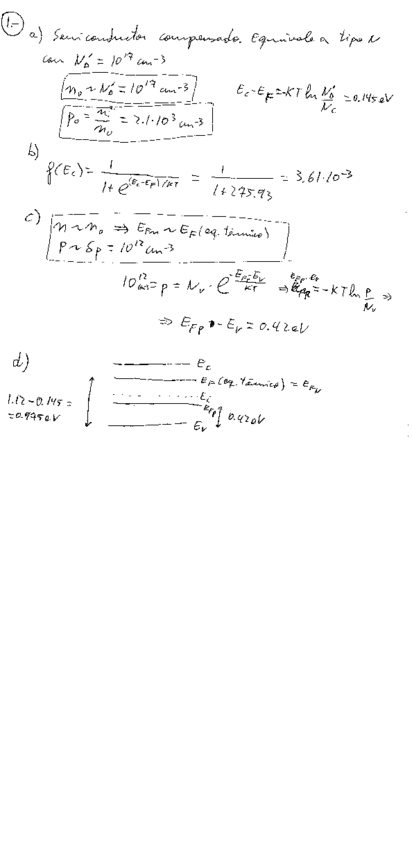 1.-
a) Semiconductor compensado. Equivale a tipo N
con N_D' = 10^17 cm^-3
n_0 ~ N_D' = 10^17 cm^-3
E_c - E_F = -KT ln N_D'/N_c = 0.145 eV
P_0 = n_i^2/n_0 = 2.1·10^3 cm^-3
b)
f(E_c) = 1/(1 + e^((E_c-E_F)/KT)) = 1/(1+275.93) = 3,61·10^-3
c)
n ~ n_0 ⇒ E_Fn ~ E_F (eq. térmico)
P ~ δp = 10^12 cm^-3
10^12 cm^-3 = p = N_v · e^(-(E_Fp-E_v)/KT) ⇒ E_Fp-E_v = -KT ln P/N_v ⇒
⇒ E_Fp - E_v = 0.42 eV
d)
E_c
E_F (eq. térmico) = E_Fn
E_i
E_Fp
0.42 eV
E_v
1.12 - 0.145 =
= 0.975 eV